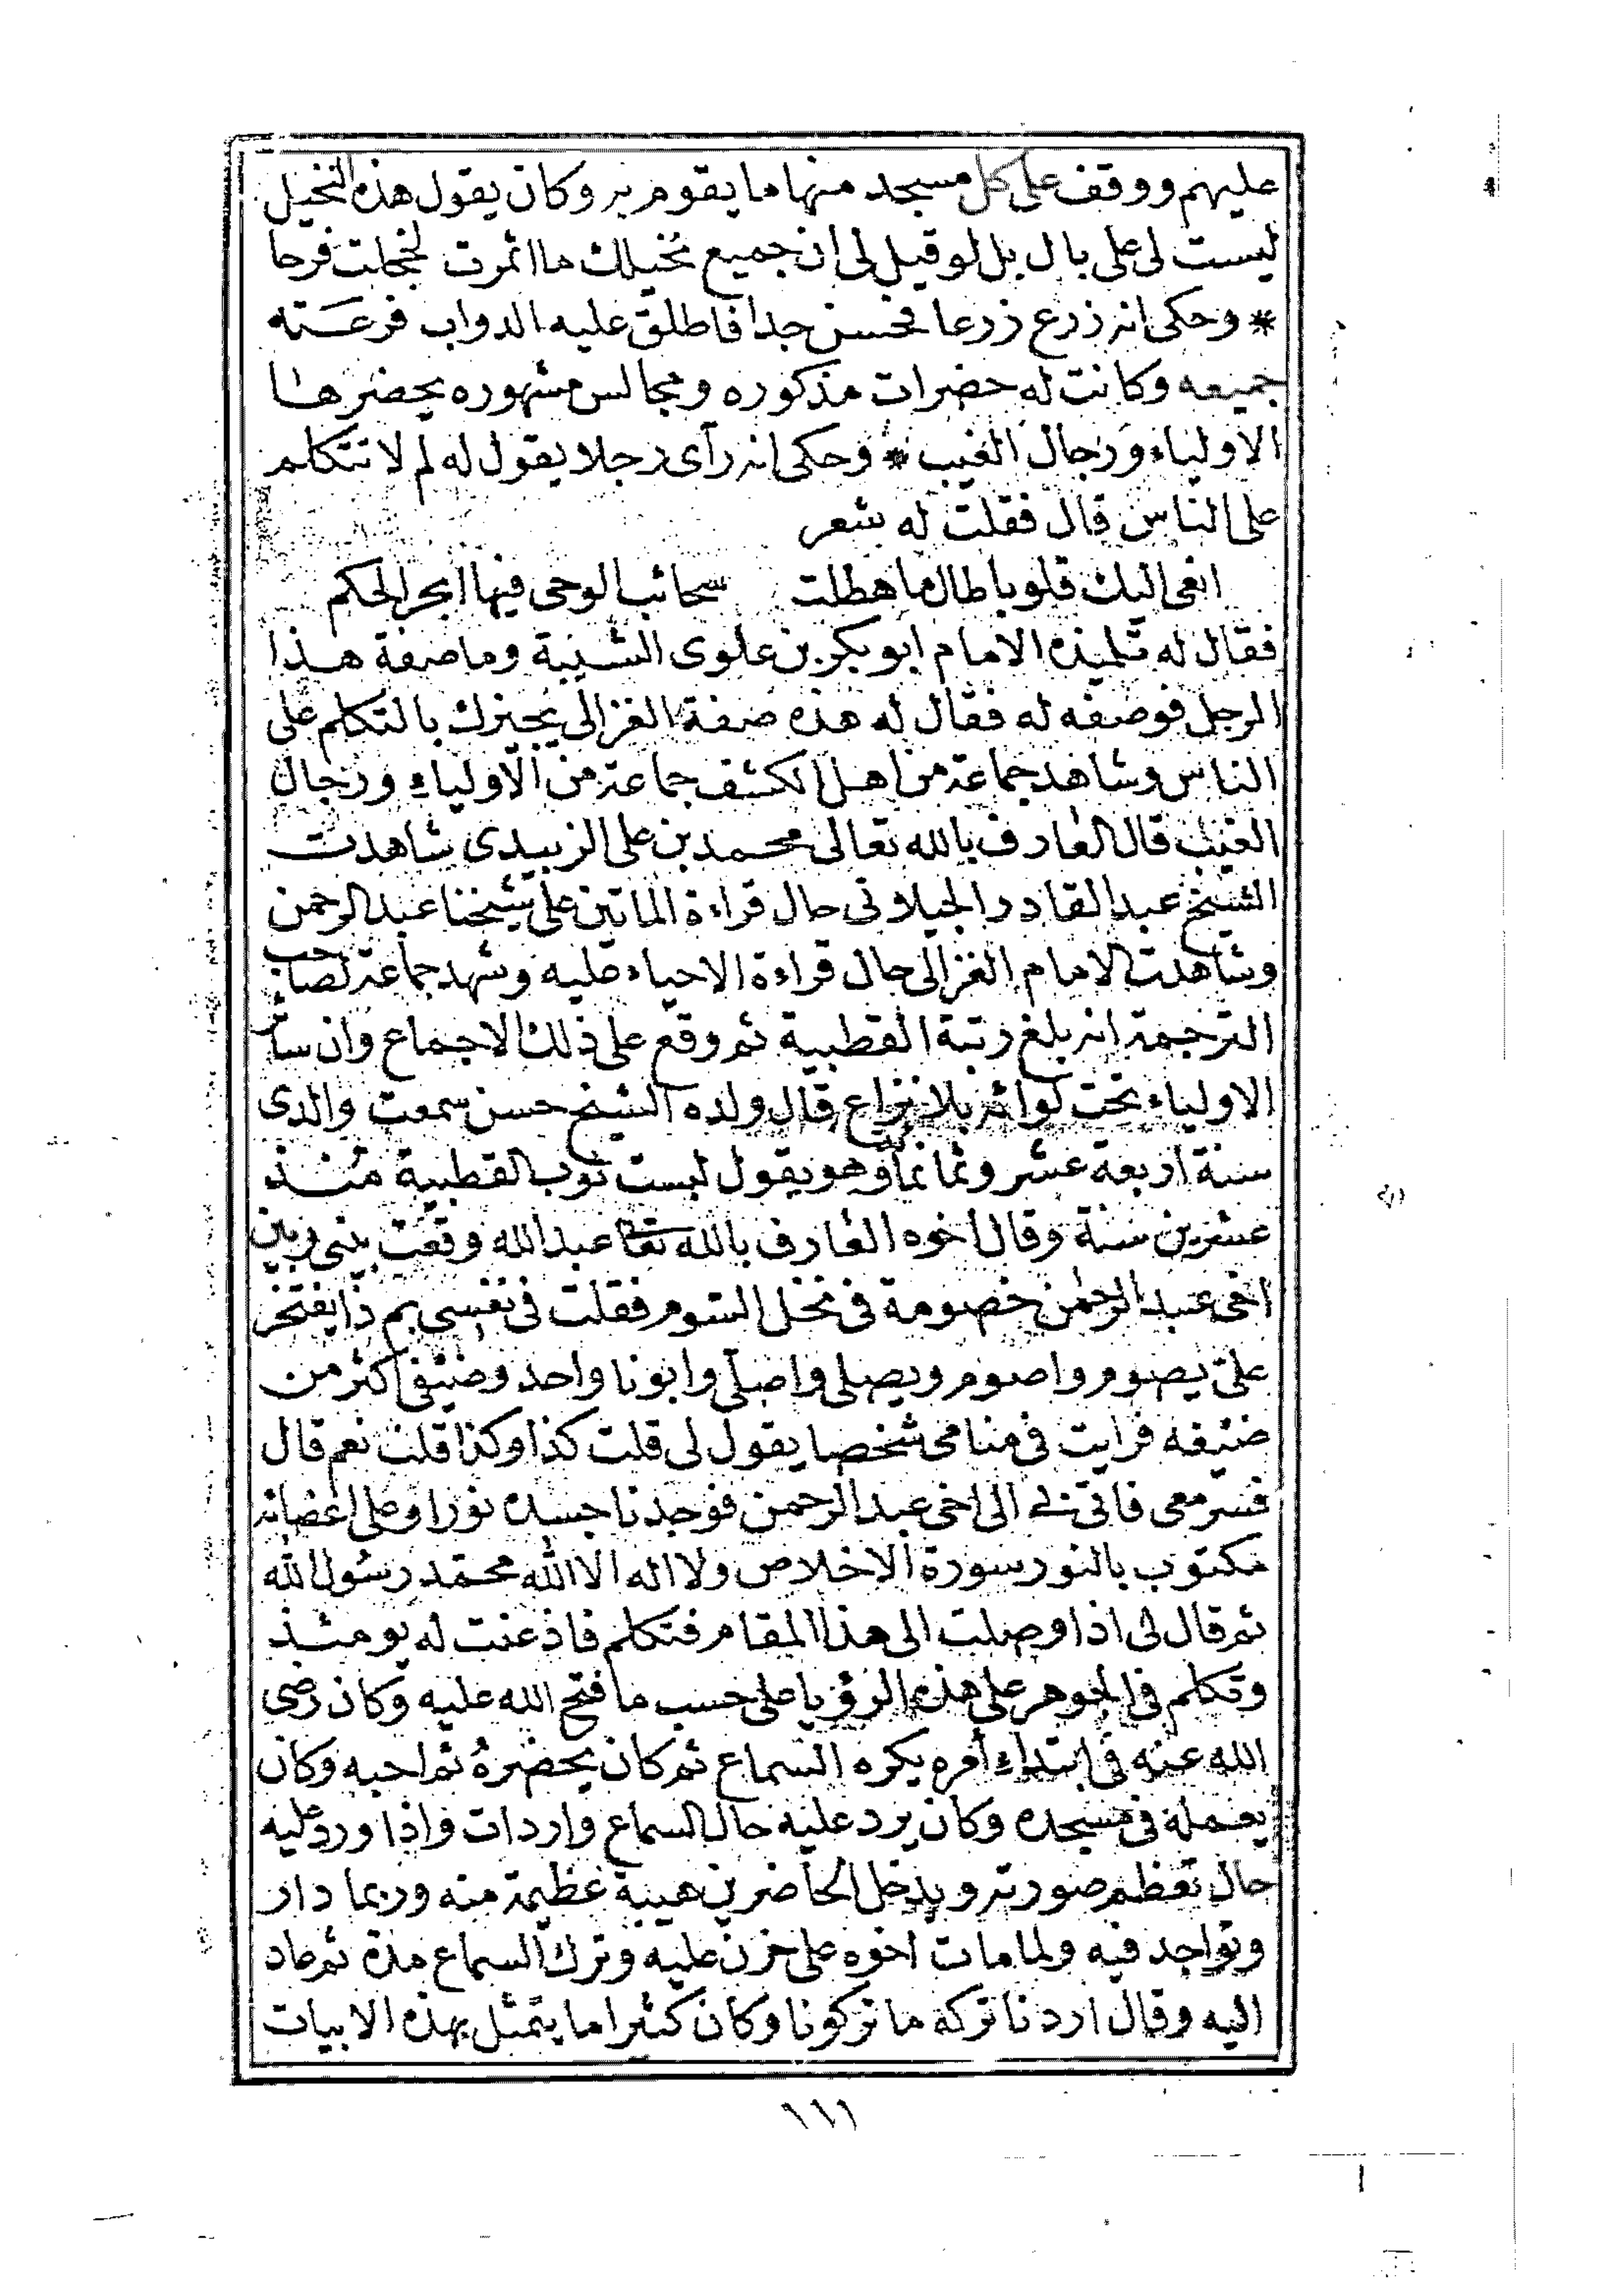 عليهم ووقف على كل مسجد منها ما يقوم به وكان يقول هذه النخيل
ليست لى على بال بل لو قيل لى ان جميع نخيلك ما اثمرت لحجلت فرحا
* وحكى انه زرع زرعا فحسن جدا فاطلق عليه الدواب فرعته
جميعه وكانت له حضرات مذكوره ومجالس مشهوره يحضرها
الاولياء ورجال الغيب * وحكى انه رآى رجلا يقول له لم لا تتكلم
على الناس قال فقلت له شعر
انعى اليك قلوبا طال ما هطلت سحائب الوحى فيها ابحر الحكم
فقال له تلميذه الامام ابو بكر بن علوى الشيبة وما صفة هذا
الرجل فوصفه له فقال له هذه صفة الغزالى يجيزك بالتكلم على
الناس وشاهد جماعة من اهل الكشف جماعة من الاولياء ورجال
الغيب قال العارف بالله تعالى محمد بن على الزبيدى شاهدت
الشيخ عبد القادر الجيلانى حال قراءة المأتين على شيخنا عبد الرحمن
وشاهدت الامام الغزالى حال قراءة الاحياء عليه وشهد جماعة لصاحب
الترجمة انه بلغ رتبة القطبية ثم وقع على ذلك الاجماع وان سائر
الاولياء تحت لوائه بلا نزاع قال ولده الشيخ حسن سمعت والدى
سنة اربعة عشر وثمانمائة وهو يقول لبست ثوب القطبية منذ
عشرين سنة وقال اخوه العارف بالله تعالى عبد الله وقعت بينى وبين
اخى عبد الرحمن خصومة فى نخل السوم فقلت فى نفسى بم ذا يفتخر
على يصوم واصوم ويصلى واصلى وابونا واحد وضيفى اكثر من
ضيفه فرايت فى منامى شخصا يقول لى قلت كذا وكذا قلت نعم قال
فسر معى فاتى بى الى اخى عبد الرحمن فوجدنا جسده نورا وعلى اعضائه
مكتوب بالنور سورة الاخلاص ولا اله الا الله محمد رسول الله
ثم قال لى اذا وصلت الى هذا المقام فتكلم فاذعنت له يومئذ
وتكلم فى الجوهر على هذه الرؤيا على حسب ما فتح الله عليه وكان رضى
الله عنه فى ابتداء أمره يكره السماع ثم كان يحضره ثم احبه وكان
يعمله فى مسجده وكان يرد عليه حال السماع واردات واذا ورد عليه
حال تعظم صورته ويدخل الحاضرين هيبة عظيمة منه وربما دار
وتواجد فيه ولما مات اخوه على حزن عليه وترك السماع مدة ثم عاد
اليه وقال اردنا تركه ما تركونا وكان كثيرا ما يتمثل بهذه الابيات
١١١